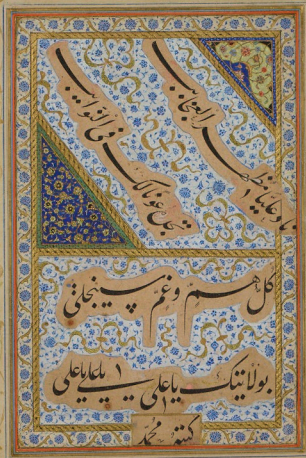 ناد علیا مظهر العجائب
تجده عونا لک فی النوائب
کل هم و غم سینجلی
بولایتک یا علی یا علی یا علی
کتبه محمد